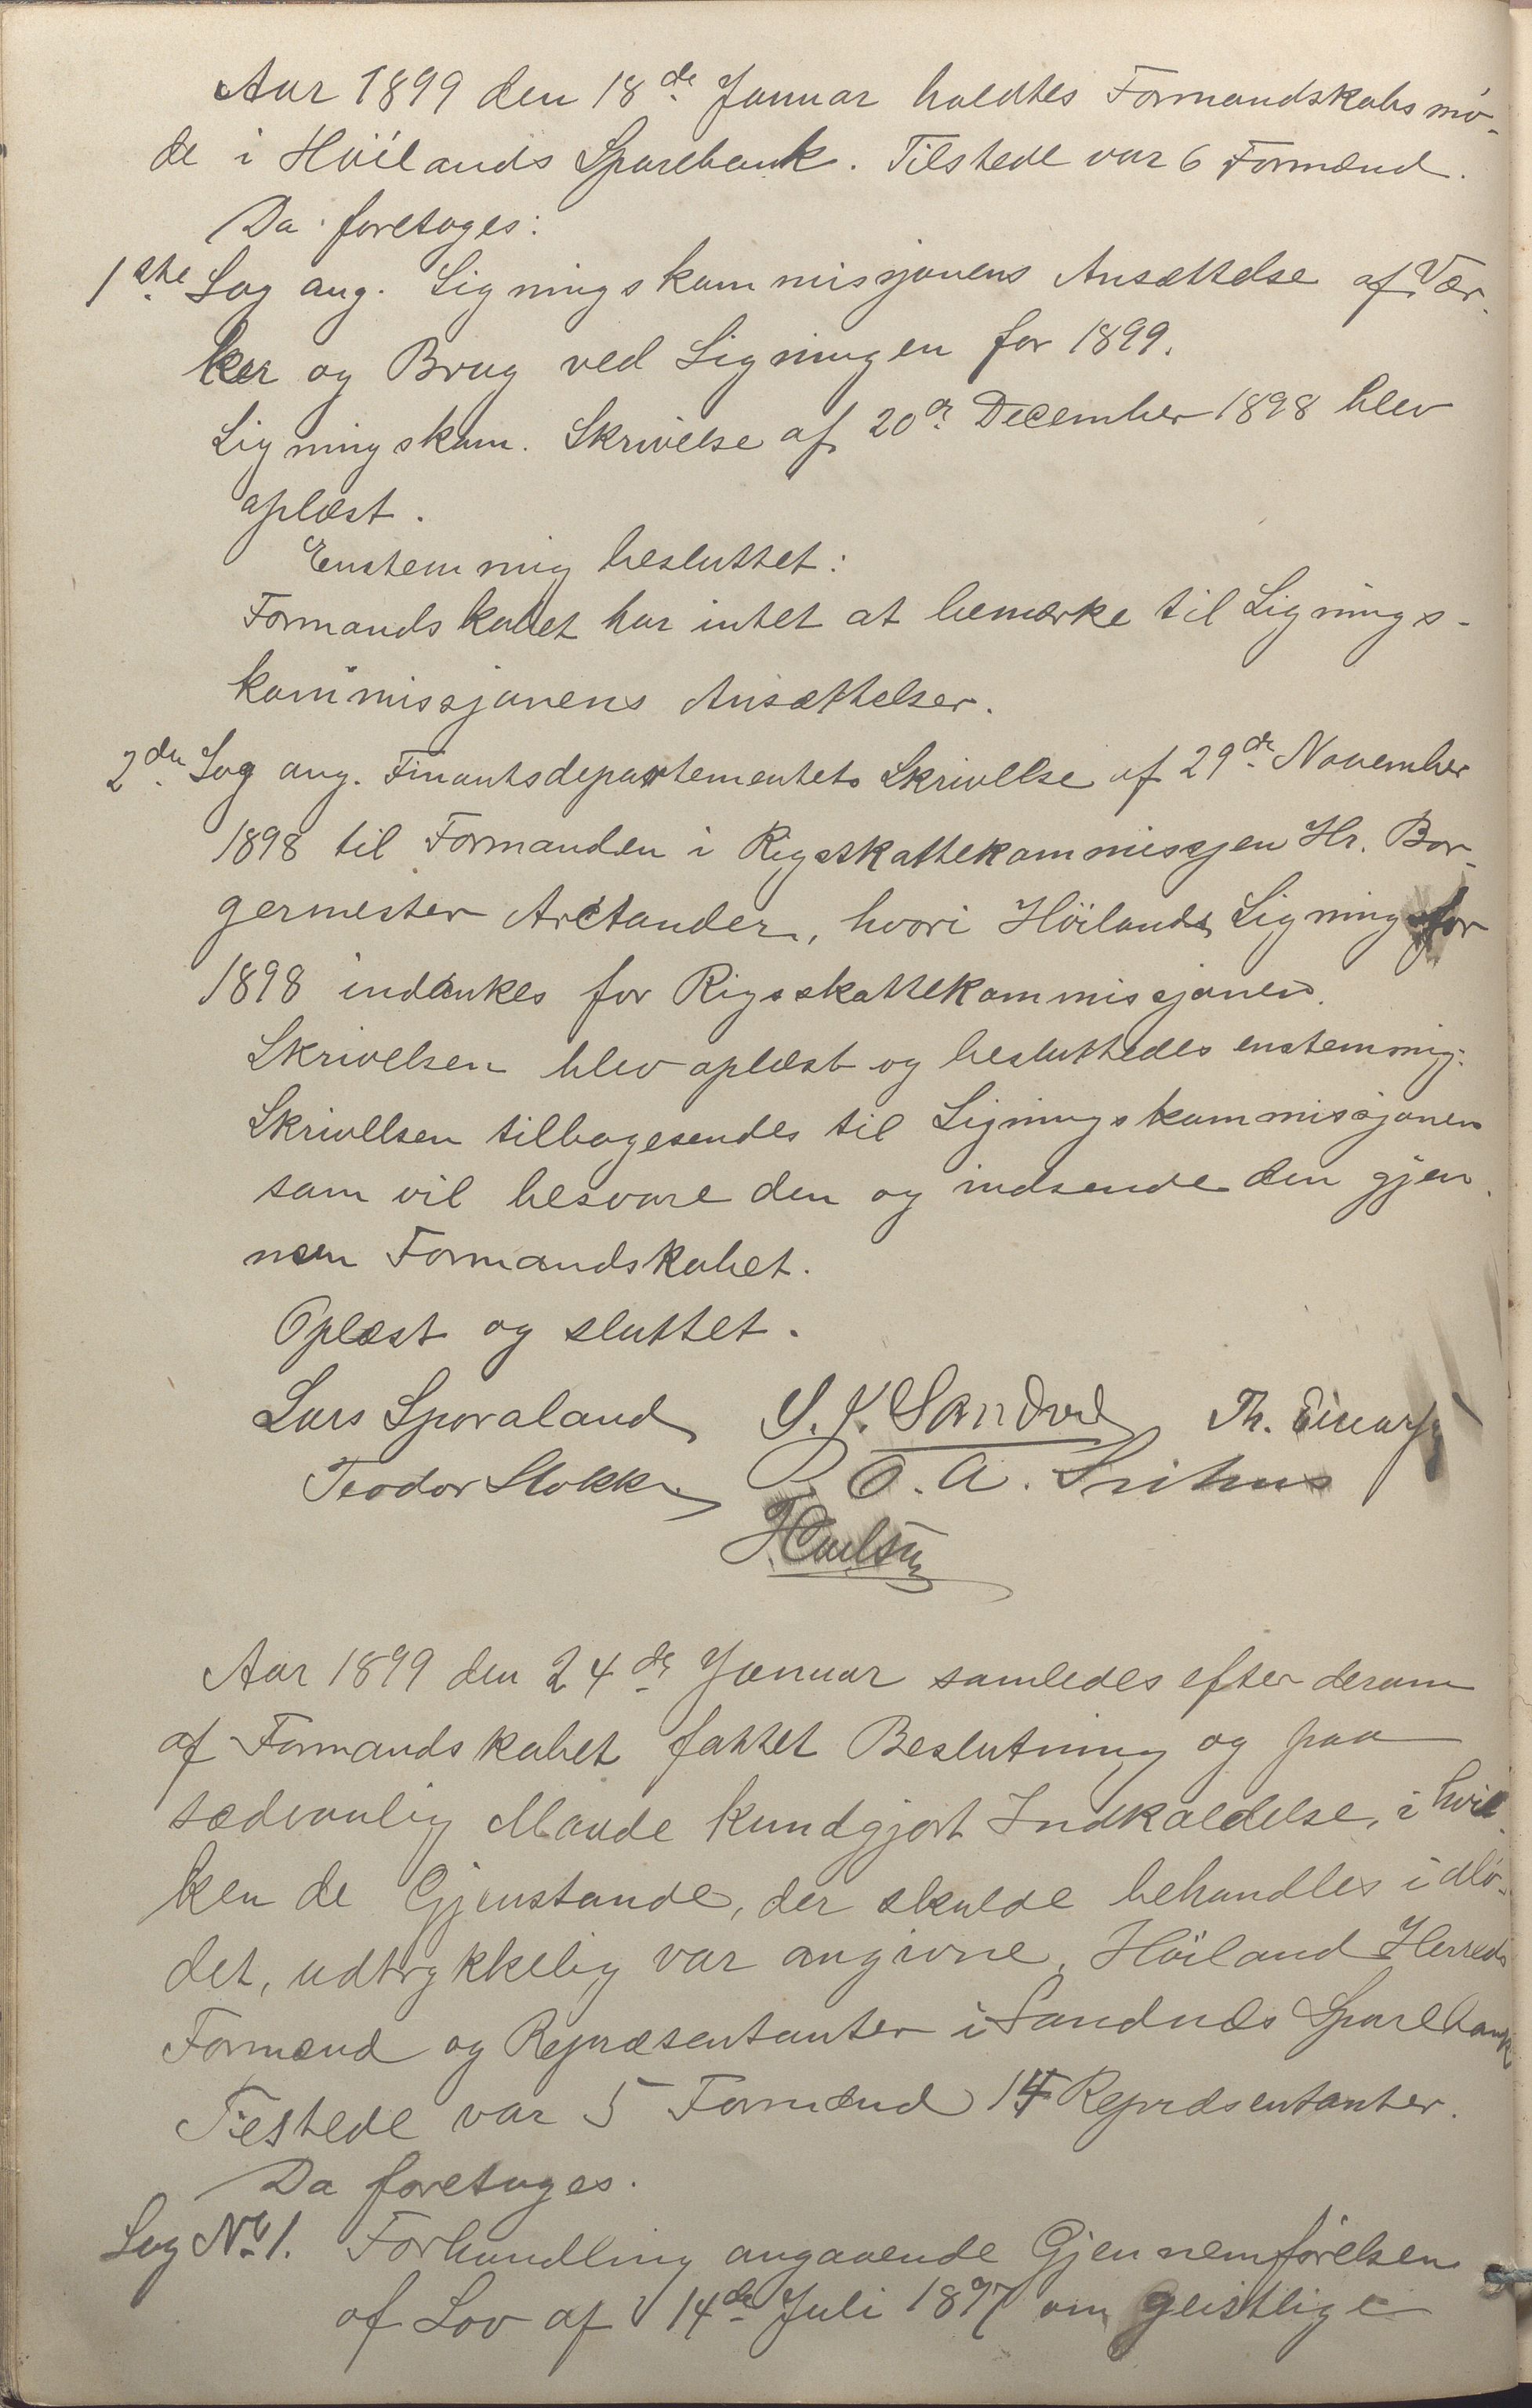 Aar 1899 den 18de Januar holdtes Formandskabsmö-
de i Höilands Sparebank. Tilstede var 6 Formænd.
Da foretoges:
1ste Sag ang. Ligningskommissjonens Ansættelse af Vær-
ker og Brug ved Ligningen for 1899.
Ligningskom. Skrivelse af 20de December 1898 blev
oplæst.
Enstemmig besluttet:
Formandskabet har intet at bemærke til Lignings-
kommissjonens Ansættelser.
2den Sag ang. Finantsdepartementets Skrivelse af 29de November
1898 til Formanden i Rigsskattekommissjen Hr. Bor-
germester Arctander, hvori Höilands Ligning for
1898 indankes for Rigsskattekommissjonen.
Skrivelsen blev oplæst og besluttedes enstemmig:
Skrivelsen tilbagesendes til Ligningskommissjonen
som vil besvare den og indsende den gjen-
nem Formandskabet.
Oplæst og sluttet.
Lars Sporaland S. K. Sandved Th.
Teodor Stokke O. A.
Aar 1899 den 24de Januar samledes efter derom
af Formandskabet fattet Beslutning og paa
sædvanlig Maade kundgjort Indkaldelse, i hvil-
ken de Gjenstande, der skulde behandles i Mö-
det, udtrykkelig var angivne, Höiland Herreds
Formænd og Repræsentanter i Sandnæs Sparebank
Tilstede var 5 Formænd 14 Repræsentanter.
Da foretoges.
Sag No 1. Forhandling angaaende Gjennemförelsen
af Lov af 14de Juli 1897 om geistlige